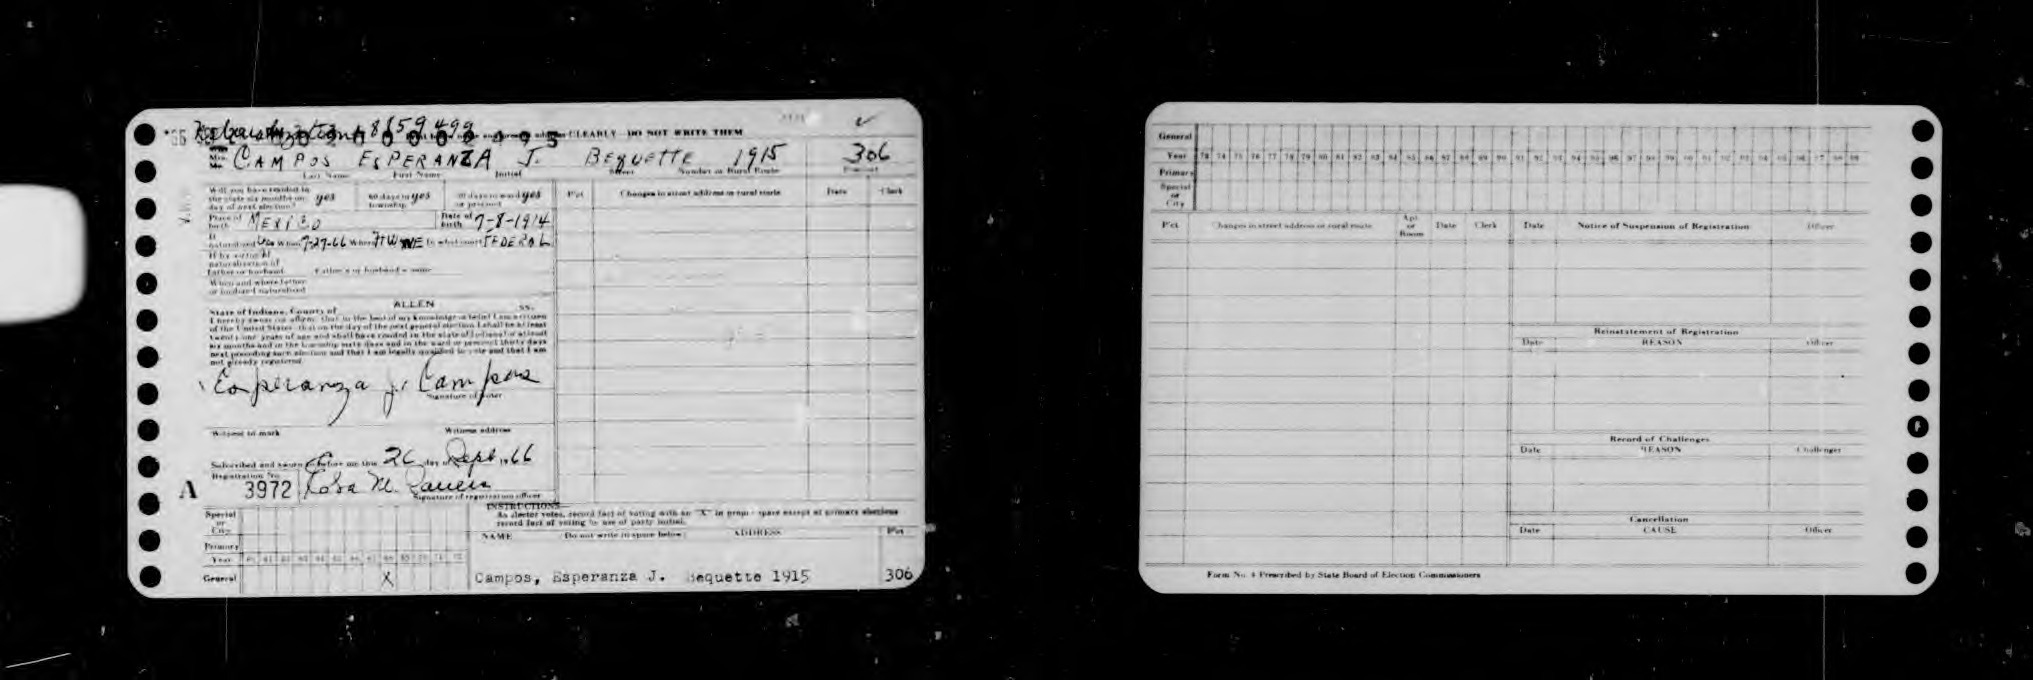 Naturalization 8659499
CLEARLY - DO NOT WRITE THEM
CAMPOS ESPERANZA J. BEQUETTE 1915 306
Last Name First Name Initial Street Number or Rural Route Precinct
Will you have resided in the state six months on day of next election? yes 60 days in township yes 30 days in ward or precinct yes
Pct Changes in street address or rural route Date Clerk
Place of birth MEXICO Date of birth 7-8-1914
If naturalized yes When 7-27-66 Where FT WAYNE In what court FEDERAL
If by virtue of naturalization of father or husband Father's or husband's name
When and where father or husband naturalized
ALLEN
State of Indiana, County of ss.
I hereby swear or affirm that to the best of my knowledge and belief I am a citizen
of the United States that on the day of the next general election I shall be at least
twenty-one years of age and shall have resided in the state of Indiana for at least
six months and in the township sixty days and in the ward or precinct thirty days
next preceding such election and that I am legally qualified to vote and that I am
not already registered.
Esperanza J. Campos
Signature of voter
Witness to mark Witness address
Subscribed and sworn to before me this 26 day of Sept 1966
Registration No.
A 3972 Rosa M.
Signature of registration officer
INSTRUCTIONS
As elector votes, record fact of voting with an "X" in proper space except at primary elections
record fact of voting by use of party initial.
Special or City
NAME (Do not write in space below) ADDRESS Pct
Primary
Year
General X
Campos, Esperanza J. Bequette 1915 306
General
Year 73 74 75 76 77 78 79 80 81 82 83 84 85 86 87 88 89 90 91 92 93 94 95 96 97 98 99
Primary
Special or City
Pct Changes in street address or rural route Apt. or Room Date Clerk Date Notice of Suspension of Registration Officer
Reinstatement of Registration
Date REASON Officer
Record of Challenges
Date REASON Challenger
Cancellation
Date CAUSE Officer
Form No. 4 Prescribed by State Board of Election Commissioners